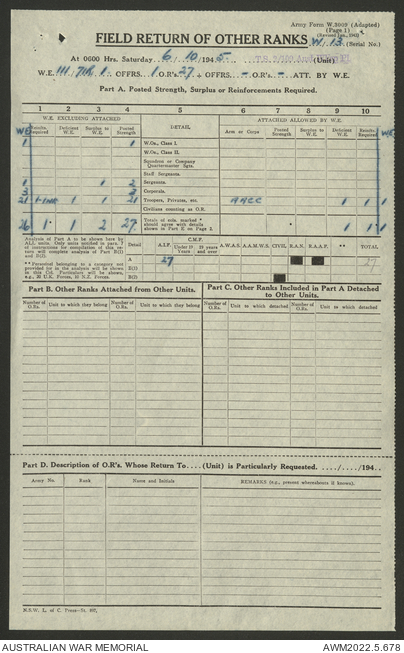 Army Form W.3009 (Adapted)
(Page 1)
FIELD RETURN OF OTHER RANKS W. 13 (Serial No.)
At 0600 Hrs. Saturday 6/10/1945 (Unit)
W.E. III 1 OFFRS. 1 O.R's. 27 ÷ OFFRS. - O.R's. - ATT. BY W.E.
Part A. Posted Strength, Surplus or Reinforcements Required.
W.E. EXCLUDING ATTACHED
ATTACHED ALLOWED BY W.E.
1 2 3 4 5 6 7 8 9 10
WE Reinfts. Required Deficient W.E. Surplus to W.E. Posted Strength DETAIL Arm or Corps Posted Strength Surplus to W.E. Deficient W.E. Reinfts. Required WE
1 1 W.Os., Class I.
W.Os., Class II.
Squadron or Company Quartermaster Sgts.
Staff Sergeants.
1 1 2 Sergeants.
3 3 Corporals.
21 1 1 21 Troopers, Privates, etc. AACC 1 1
Civilians counting as O.R.
26 1 1 2 27 Totals of cols. marked * should agree with details shown in Part E on Page 2. 1 1 1
Analysis of Part A to be shown here by ALL units. Only units notified in para. 7 of instructions for compilation of this return will complete analysis of Part B(1) and B(2).
**Personnel belonging to a category not provided for in the analysis should be shown in this Col. Particulars will be shown, e.g., 10 U.K. Forces, 15 N.Z. Forces.
Detail A.I.F. C.M.F. Under 19 Years 19 Years and over A.W.A.S. A.A.M.W.S. CIVIL R.A.N. R.A.A.F. ** TOTAL
A 27 27
B(1)
B(2)
Part B. Other Ranks Attached from Other Units.
Part C. Other Ranks Included in Part A Detached to Other Units.
Number of O.Rs. Unit to which they belong Number of O.Rs. Unit to which they belong Number of O.Rs. Unit to which detached Number of O.Rs. Unit to which detached
Part D. Description of O.R's. Whose Return To....(Unit) is Particularly Requested. ..../..../194..
Army No. Rank Name and Initials REMARKS (e.g., present whereabouts if known).
N.S.W. L. of C. Press—St.
AUSTRALIAN WAR MEMORIAL AWM2022.5.678